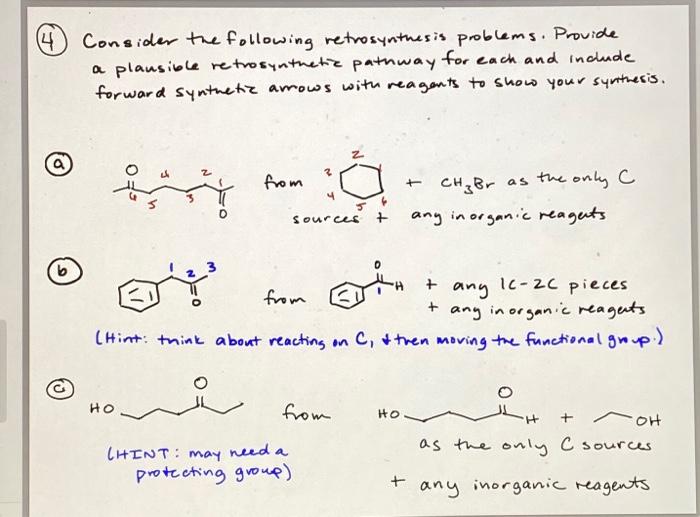 4 Consider the following retrosynthesis problems. Provide
a plausible retrosynthetic pathway for each and include
forward synthetic arrows with reagents to show your synthesis.
a
O 4 2 1 6 5 3 O
from
2 2 4 5 6
+ CH3Br as the only C
sources + any inorganic reagents
b
1 2 3 O
from
O H 1
+ any 1C-2C pieces
+ any inorganic reagents
(Hint: think about reacting on C1 & then moving the functional group.)
c
HO O
from
HO O H + OH
(HINT: may need a
protecting group)
as the only C sources
+ any inorganic reagents